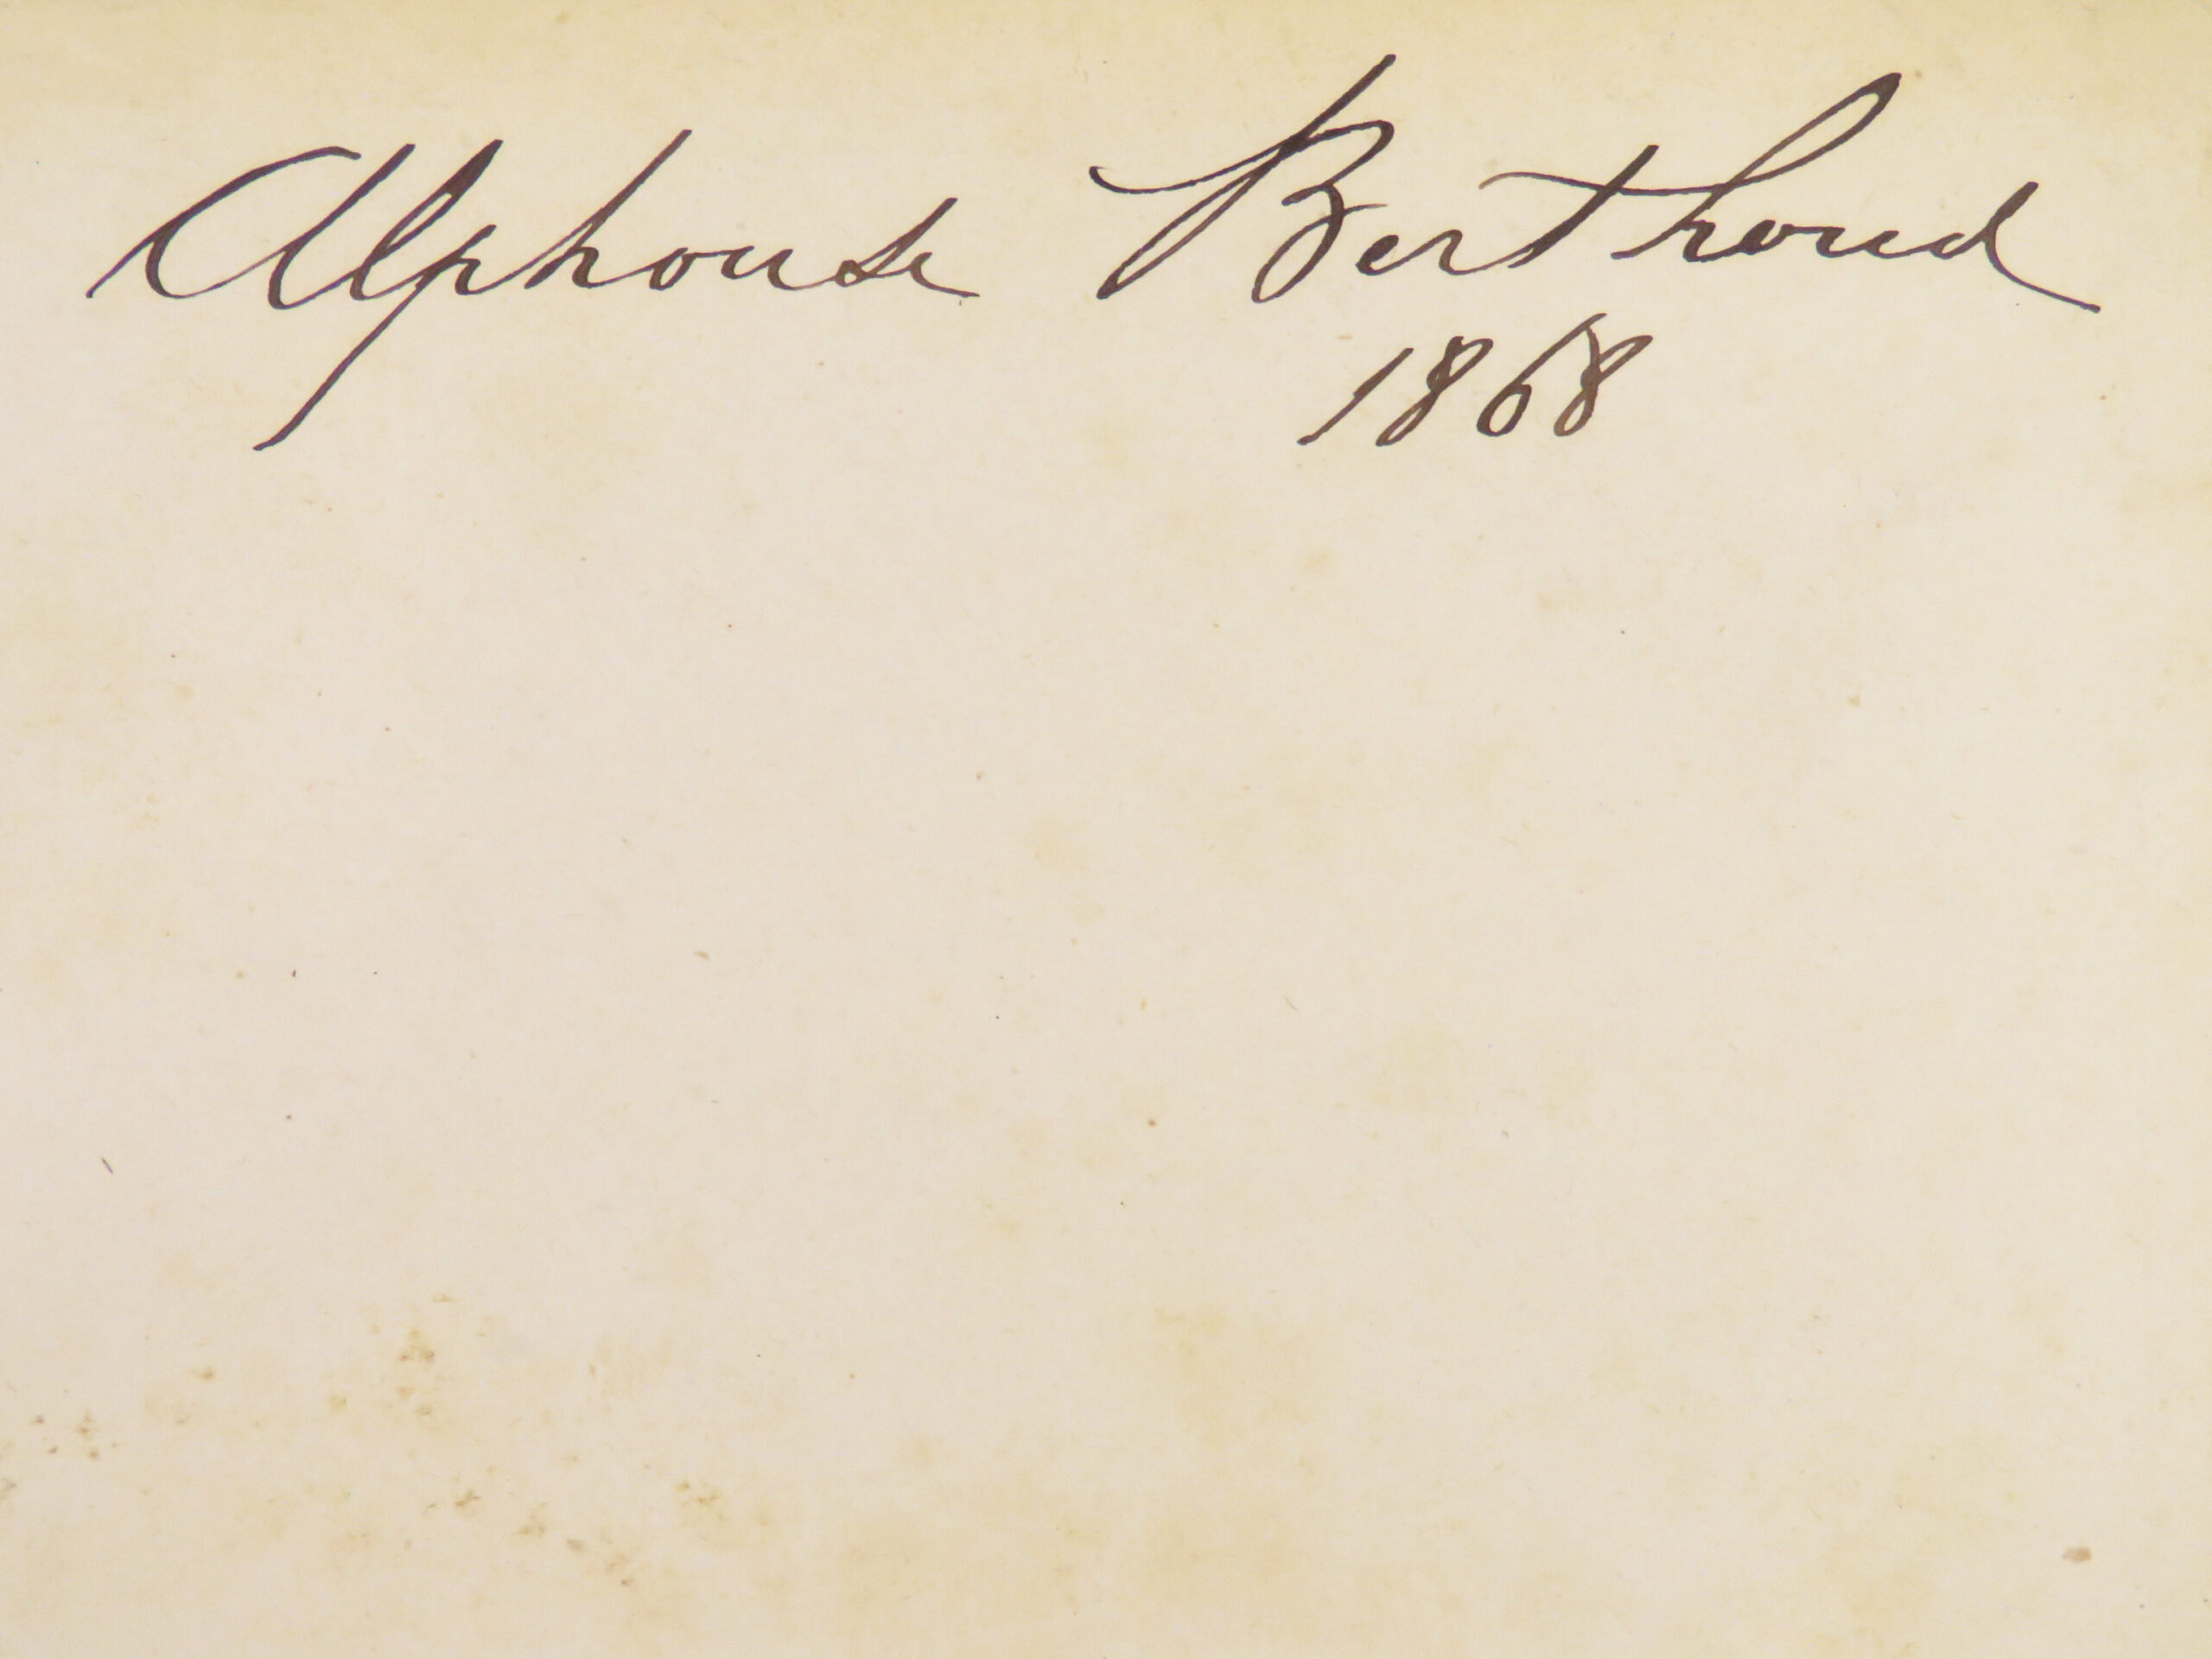 Alphonse Berthoud
1868